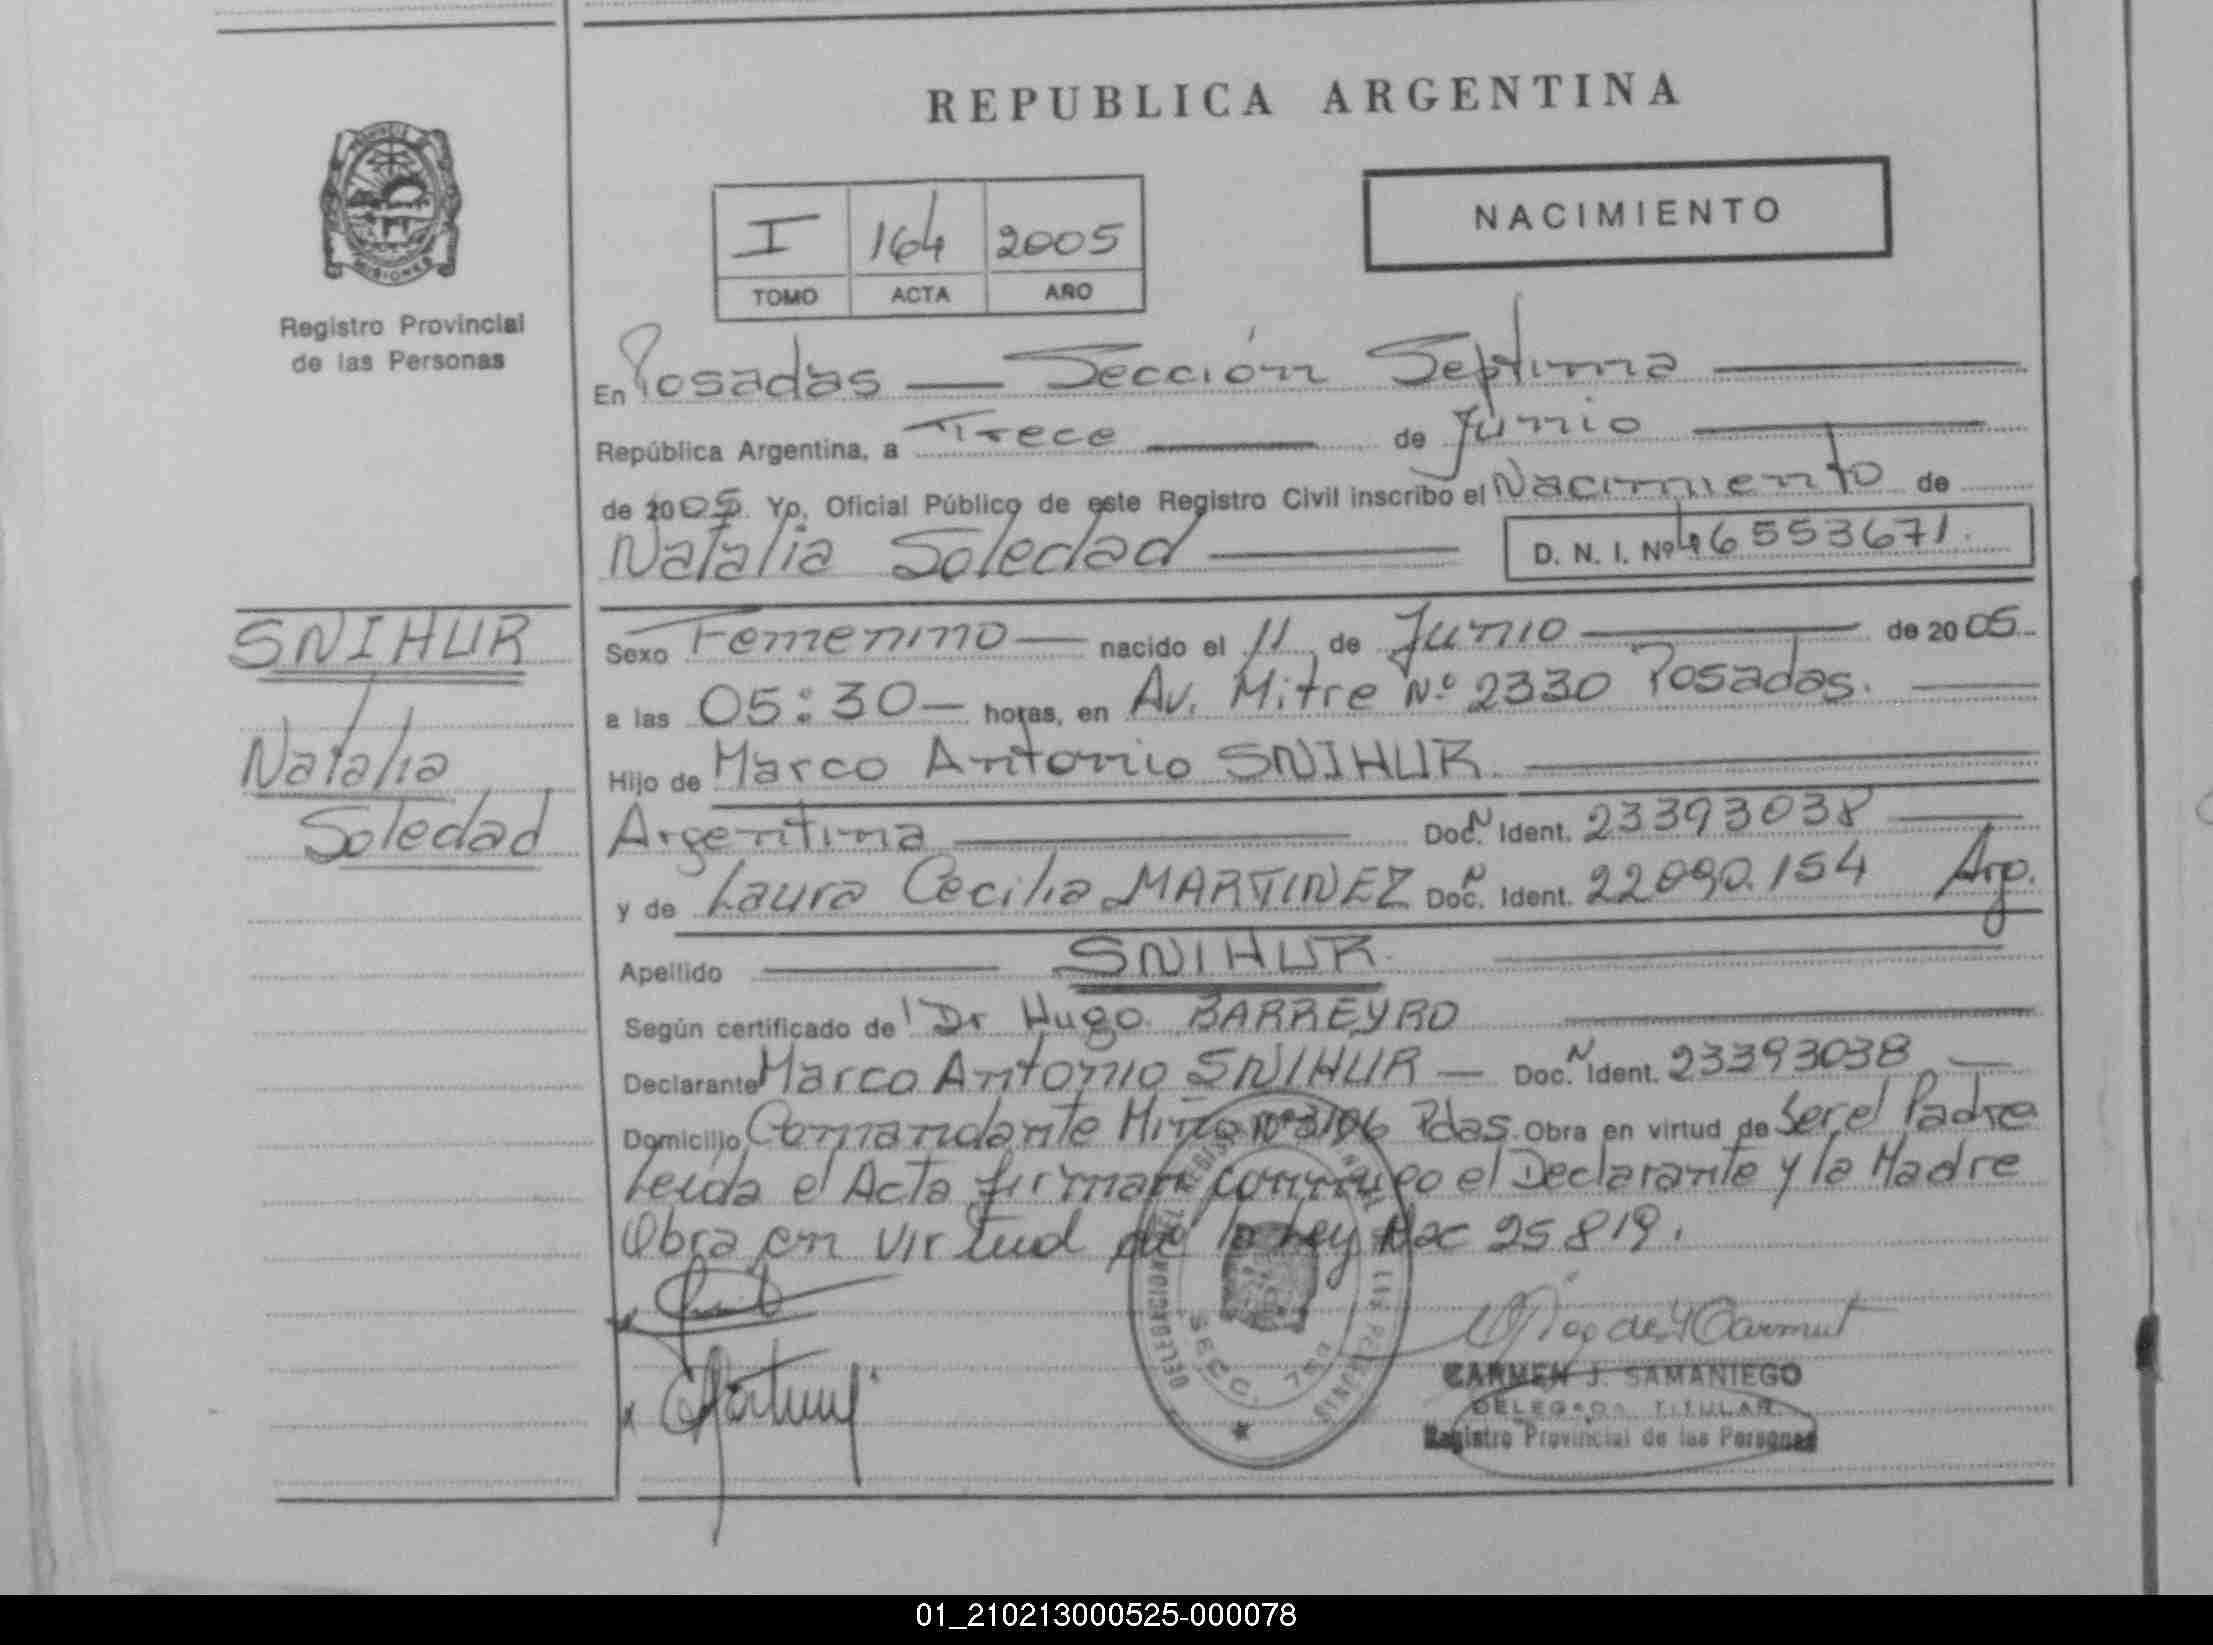 REPUBLICA ARGENTINA
PROVINCIA
MISIONES
Registro Provincial
de las Personas
I 164 2005
TOMO ACTA AÑO
NACIMIENTO
En Posadas — Sección Septima
República Argentina, a Trece de Junio
de 2005. Yo, Oficial Público de este Registro Civil inscribo el Nacimiento de
Natalia Soledad D. N. I. Nº 46553671.
SNIHUR
Natalia
Soledad
Sexo Femenino — nacido el 11 de Junio de 2005
a las 05:30 — horas, en Av. Mitre Nº 2330 Posadas.
Hijo de Marco Antonio SNIHUR
Argentina Doc. N Ident. 23393038
y de Laura Cecilia MARTINEZ Doc. N Ident. 22090.154 Arg.
Apellido SNIHUR
Según certificado de Dr Hugo BARREYRO
Declarante Marco Antonio SNIHUR — Doc. N Ident. 23393038
Domicilio Comandante Miño Nº 3106 Pdas. Obra en virtud de Ser el Padre
Leida el Acta firman conmigo el Declarante y la Madre
Obra en virtud de la Ley Nac 25819.
DELEGACION
SECC. 7ma
CARMEN J. SAMANIEGO
DELEGADA TITULAR
Registro Provincial de las Personas
01_210213000525-000078